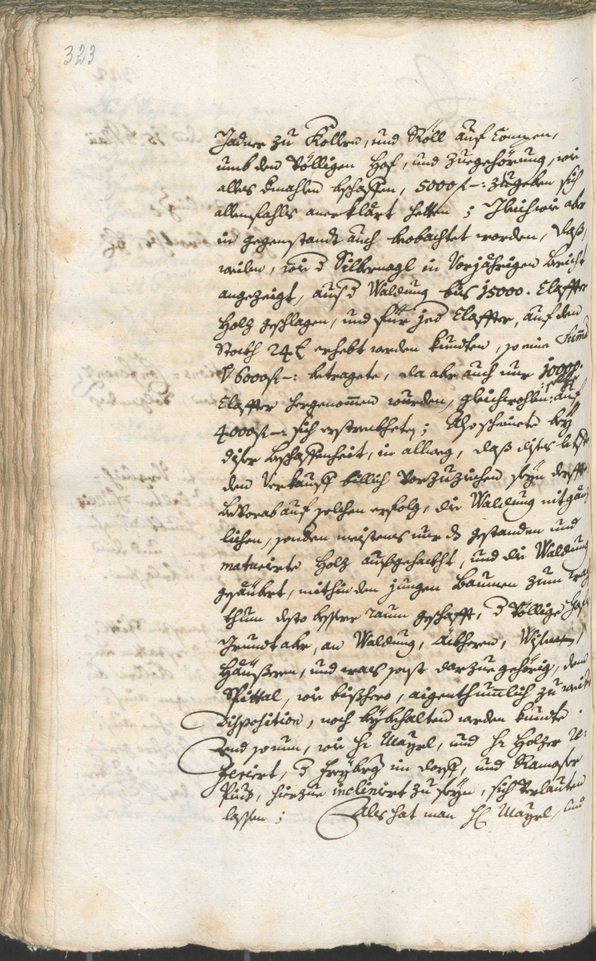 323
Jadner zu Kollen, und Köll auf
umb den völligen Hof, und Zuegehörung, wie
alles dermahlen beschaffen, 5000 f –: zugeben sich
allenfahls anerklärt hetten; Gleichwie aber
in gegenstandt auch beobachtet worden, daß,
weilen, wie d Silbernagl in Vorjährigen bericht
angezeigt, aus d Waldung bis 15000. Claffter
Holz geschlagen, und für jed Claffter, auf den
Stockh 24 x erhebt werden kundten, so eine Summa
6000 f –: betragete, da aber auch nur 10000.
Claffter hergenommen wurden, gleichwohlen auf
4000 f –: sich erstreckheten; Also scheinete bey
diser beschaffenheit, in allweg, daß dises letste
dem Verkauff billich Vorzuziehen seyn derffte
bevorab auf solchen erfolg, die Waldung nit gänz-
lichen, sondern meistens nur dz gestanden und
maturirte Holz ausgehackht, und die Waldung
gesäubert, mithin den jungen baumen zum wax-
thum desto bessere raum geschafft, d völlige Hof,
Grundt aber, an Waldung, Äckhern, Wisen,
Häuseren, und was sonst darzue gehörig, dem
Spittal, wie bishero, aigenthumblich zu
Disposition, noch beybehalten werden kundte.
Und so nun, wie H: Mayrl, und H: Holzer
d Freyberg im dorff, und Ramoser
Puz, hierzue incliniert zu seyn, sich verlauten
lassen; Alles hat man H: Mayrl, und